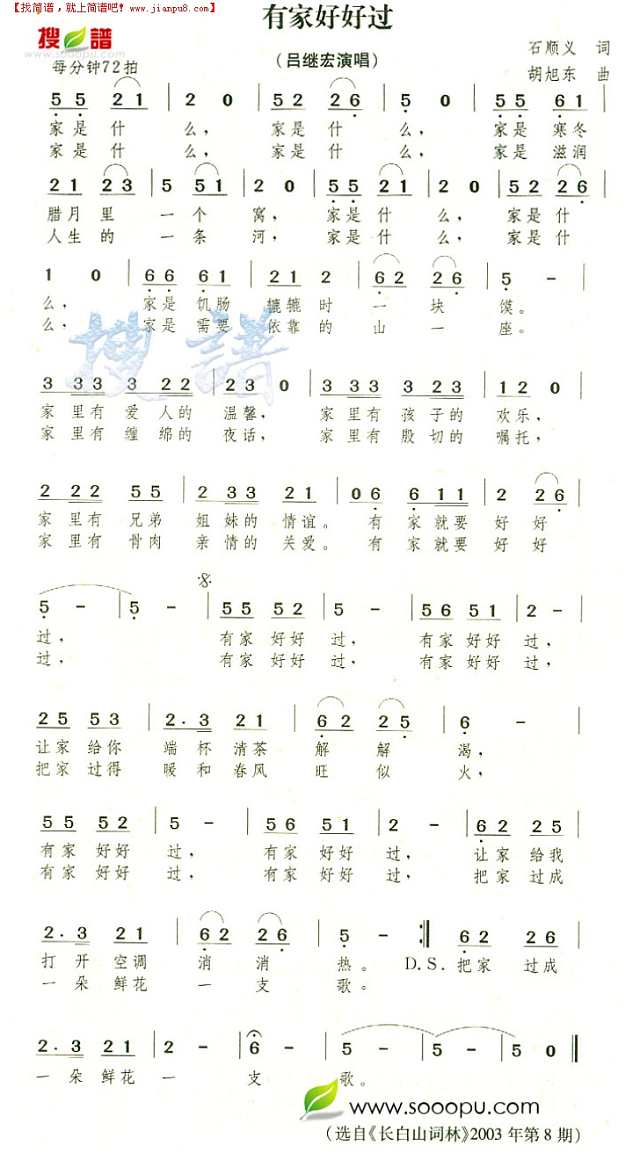 【找简谱，就上简谱吧！www.jianpu8.com】
有家好好过
搜谱
(吕继宏演唱)
石顺义 词
每分钟72拍
胡旭东 曲
5 5 2 1 | 2 0 | 5 2 2 6 | 5 0 | 5 5 6 1 |
家是什么，家是什么，家是寒冬
家是什么，家是什么，家是滋润
2 1 2 3 | 5 5 1 | 2 0 | 5 5 2 1 | 2 0 | 5 2 2 6 |
腊月里一个窝，家是什么，家是什
人生的一条河，家是什么，家是什
1 0 | 6 6 6 1 | 2 1 2 | 6 2 2 6 | 5 - |
么，家是饥肠辘辘时一块馍。
么，家是需要依靠的山一座。
搜谱
3 3 3 3 3 2 2 | 2 3 0 | 3 3 3 3 2 3 | 1 2 0 |
家里有爱人的温馨，家里有孩子的欢乐，
家里有缠绵的夜话，家里有殷切的嘱托，
2 2 2 5 5 | 2 3 3 2 1 | 0 6 6 1 1 | 2 2 6 |
家里有兄弟姐妹的情谊。有家就要好好
家里有骨肉亲情的关爱。有家就要好好
5 - | 5 - | 5 5 5 2 | 5 - | 5 6 5 1 | 2 - |
过，有家好好过，有家好好过，
过，有家好好过，有家好好过，
2 5 5 5 | 2. 3 2 1 | 6 2 2 5 | 6 - |
让家给你端杯清茶解解渴，
把家过得暖和春风旺似火，
5 5 5 2 | 5 - | 5 6 5 1 | 2 - | 6 2 2 5 |
有家好好过，有家好好过，让家给我
有家好好过，有家好好过，把家过成
2. 3 2 1 | 6 2 2 6 | 5 - :| 6 2 2 5 |
打开空调消消热。D.S.把家过成
一朵鲜花一支歌。
2. 3 2 1 | 2 - | 6 - | 5 - | 5 - | 5 0 ‖
一朵鲜花一支歌。
www.sooopu.com
(选自《长白山词林》2003年第8期)